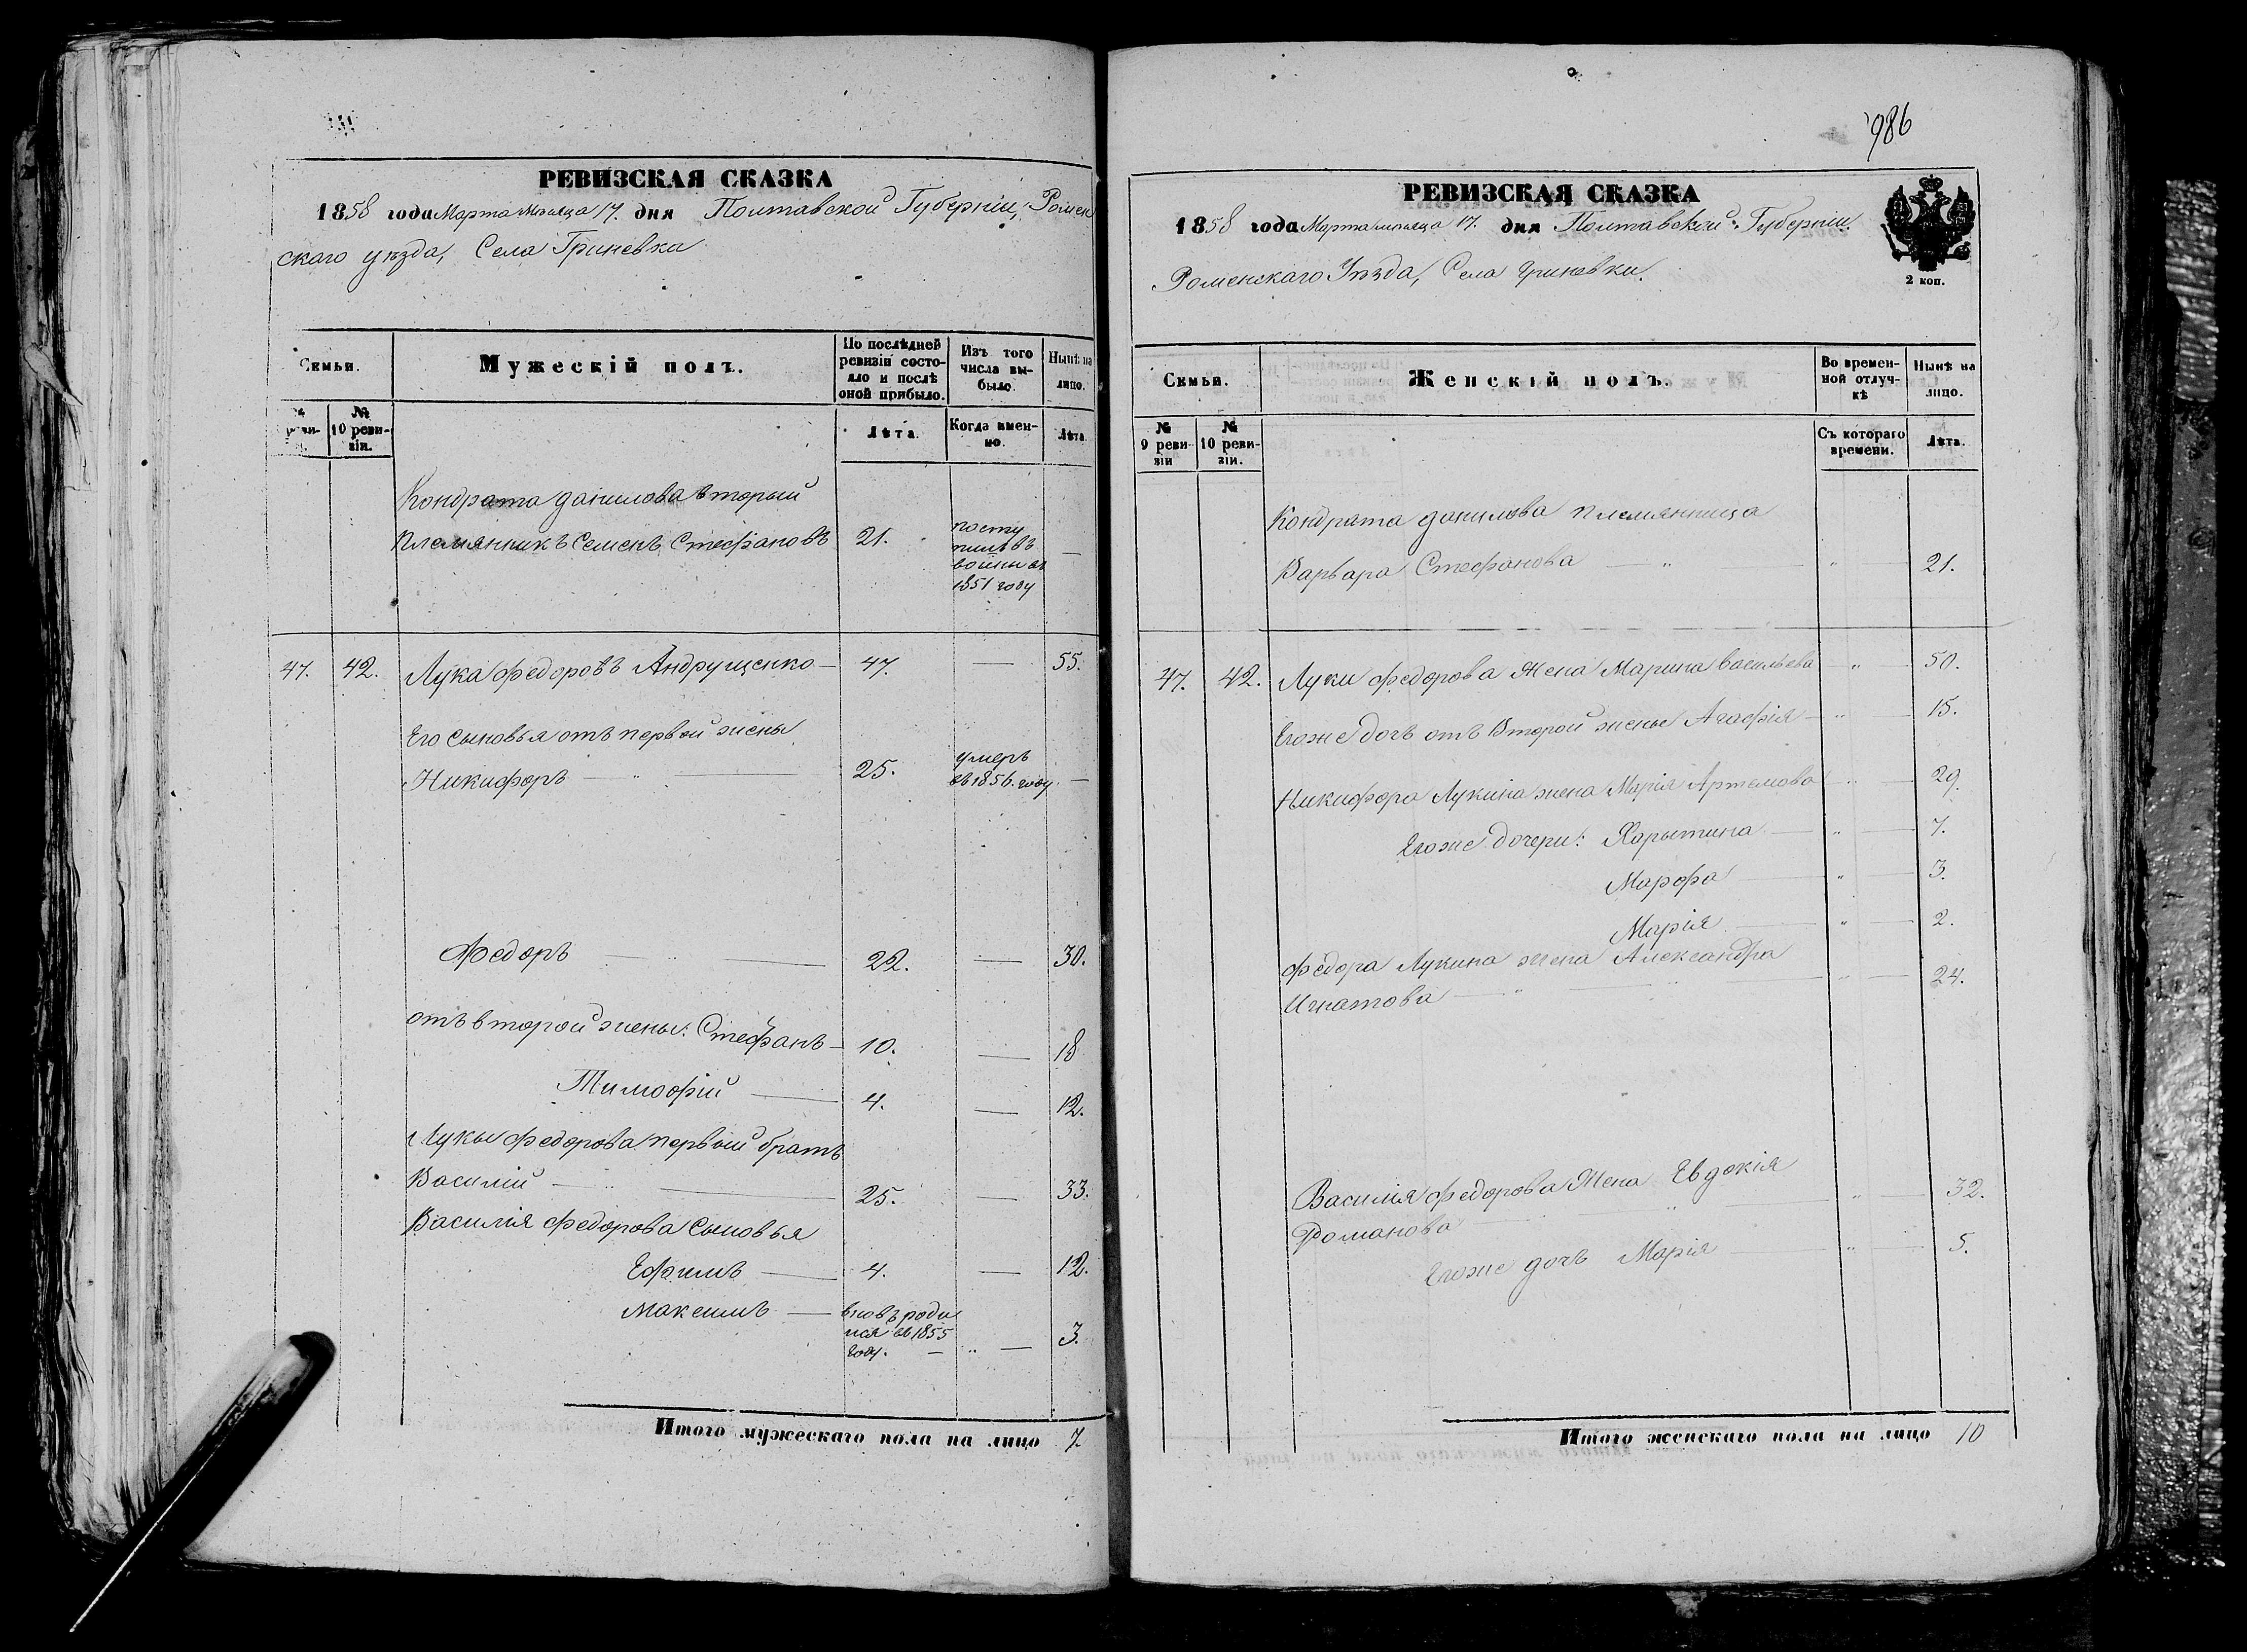 РЕВИЗСКАЯ СКАЗКА
1858 года Марта Мѣсяца 17. дня Полтавской Губерніи, Ромен
скаго уѣзда, Села Гриневки
Семьи.
Мужескій полъ.
По послѣдней ревизіи состояло и послѣ оной прибыло.
Изъ того числа выбыло.
Нынѣ на лицо.
№
10 ревизіи.
Лѣта.
Когда именно.
Лѣта.
Кондрата данилова вторый
племянникъ Семенъ Стефановъ 21. посту
пилъ въ
1851 году
47. 42. Лука федоровъ Андрущенко — 47. — 55.
Его сыновья отъ первой жены
Никифоръ — " — 25. умеръ
въ 1856. году —
Федоръ — " — 22. — 30.
отъ второй жены: Стефанъ — 10. — 18
Тимофій — 4. — 12.
Луки федорова первый братъ
Василій — " — 25. — 33.
Василія федорова сыновья
Ефимъ — 4. — 12.
Максимъ — вновь роди
лся въ 1855
году. — " — 3.
Итого мужескаго пола на лицо 7.
986
РЕВИЗСКАЯ СКАЗКА
1858 года Марта мѣсяца 17. дня Полтавской Губерніи.
Роменскаго Уѣзда, Села Гриневки.
2 коп.
Семьи.
Женскій полъ.
Во временной отлучкѣ
Нынѣ на лицо.
№ 9 ревизіи
№ 10 ревизіи.
Съ котораго времени.
Лѣта.
Кондрата данилова племянница
Варвара Стефанова — " — " 21.
47. 42. Луки федорова Жена Марина васильева — " — 50.
Егоже дочь отъ Второй жены Агафія — " — 15.
Никифора Лукина жена Марія Артемова — " — 29.
Егоже дочери: Харытина — " — 7.
Марфа — " — 3.
Марія — " — 2.
федора Лукина жена Александра
Игнатова — " — " — " — 24.
Василія федорова Жена Евдокія
Романова — " — " 32.
Егоже дочь Марія — " — 5.
Итого женскаго пола на лицо 10